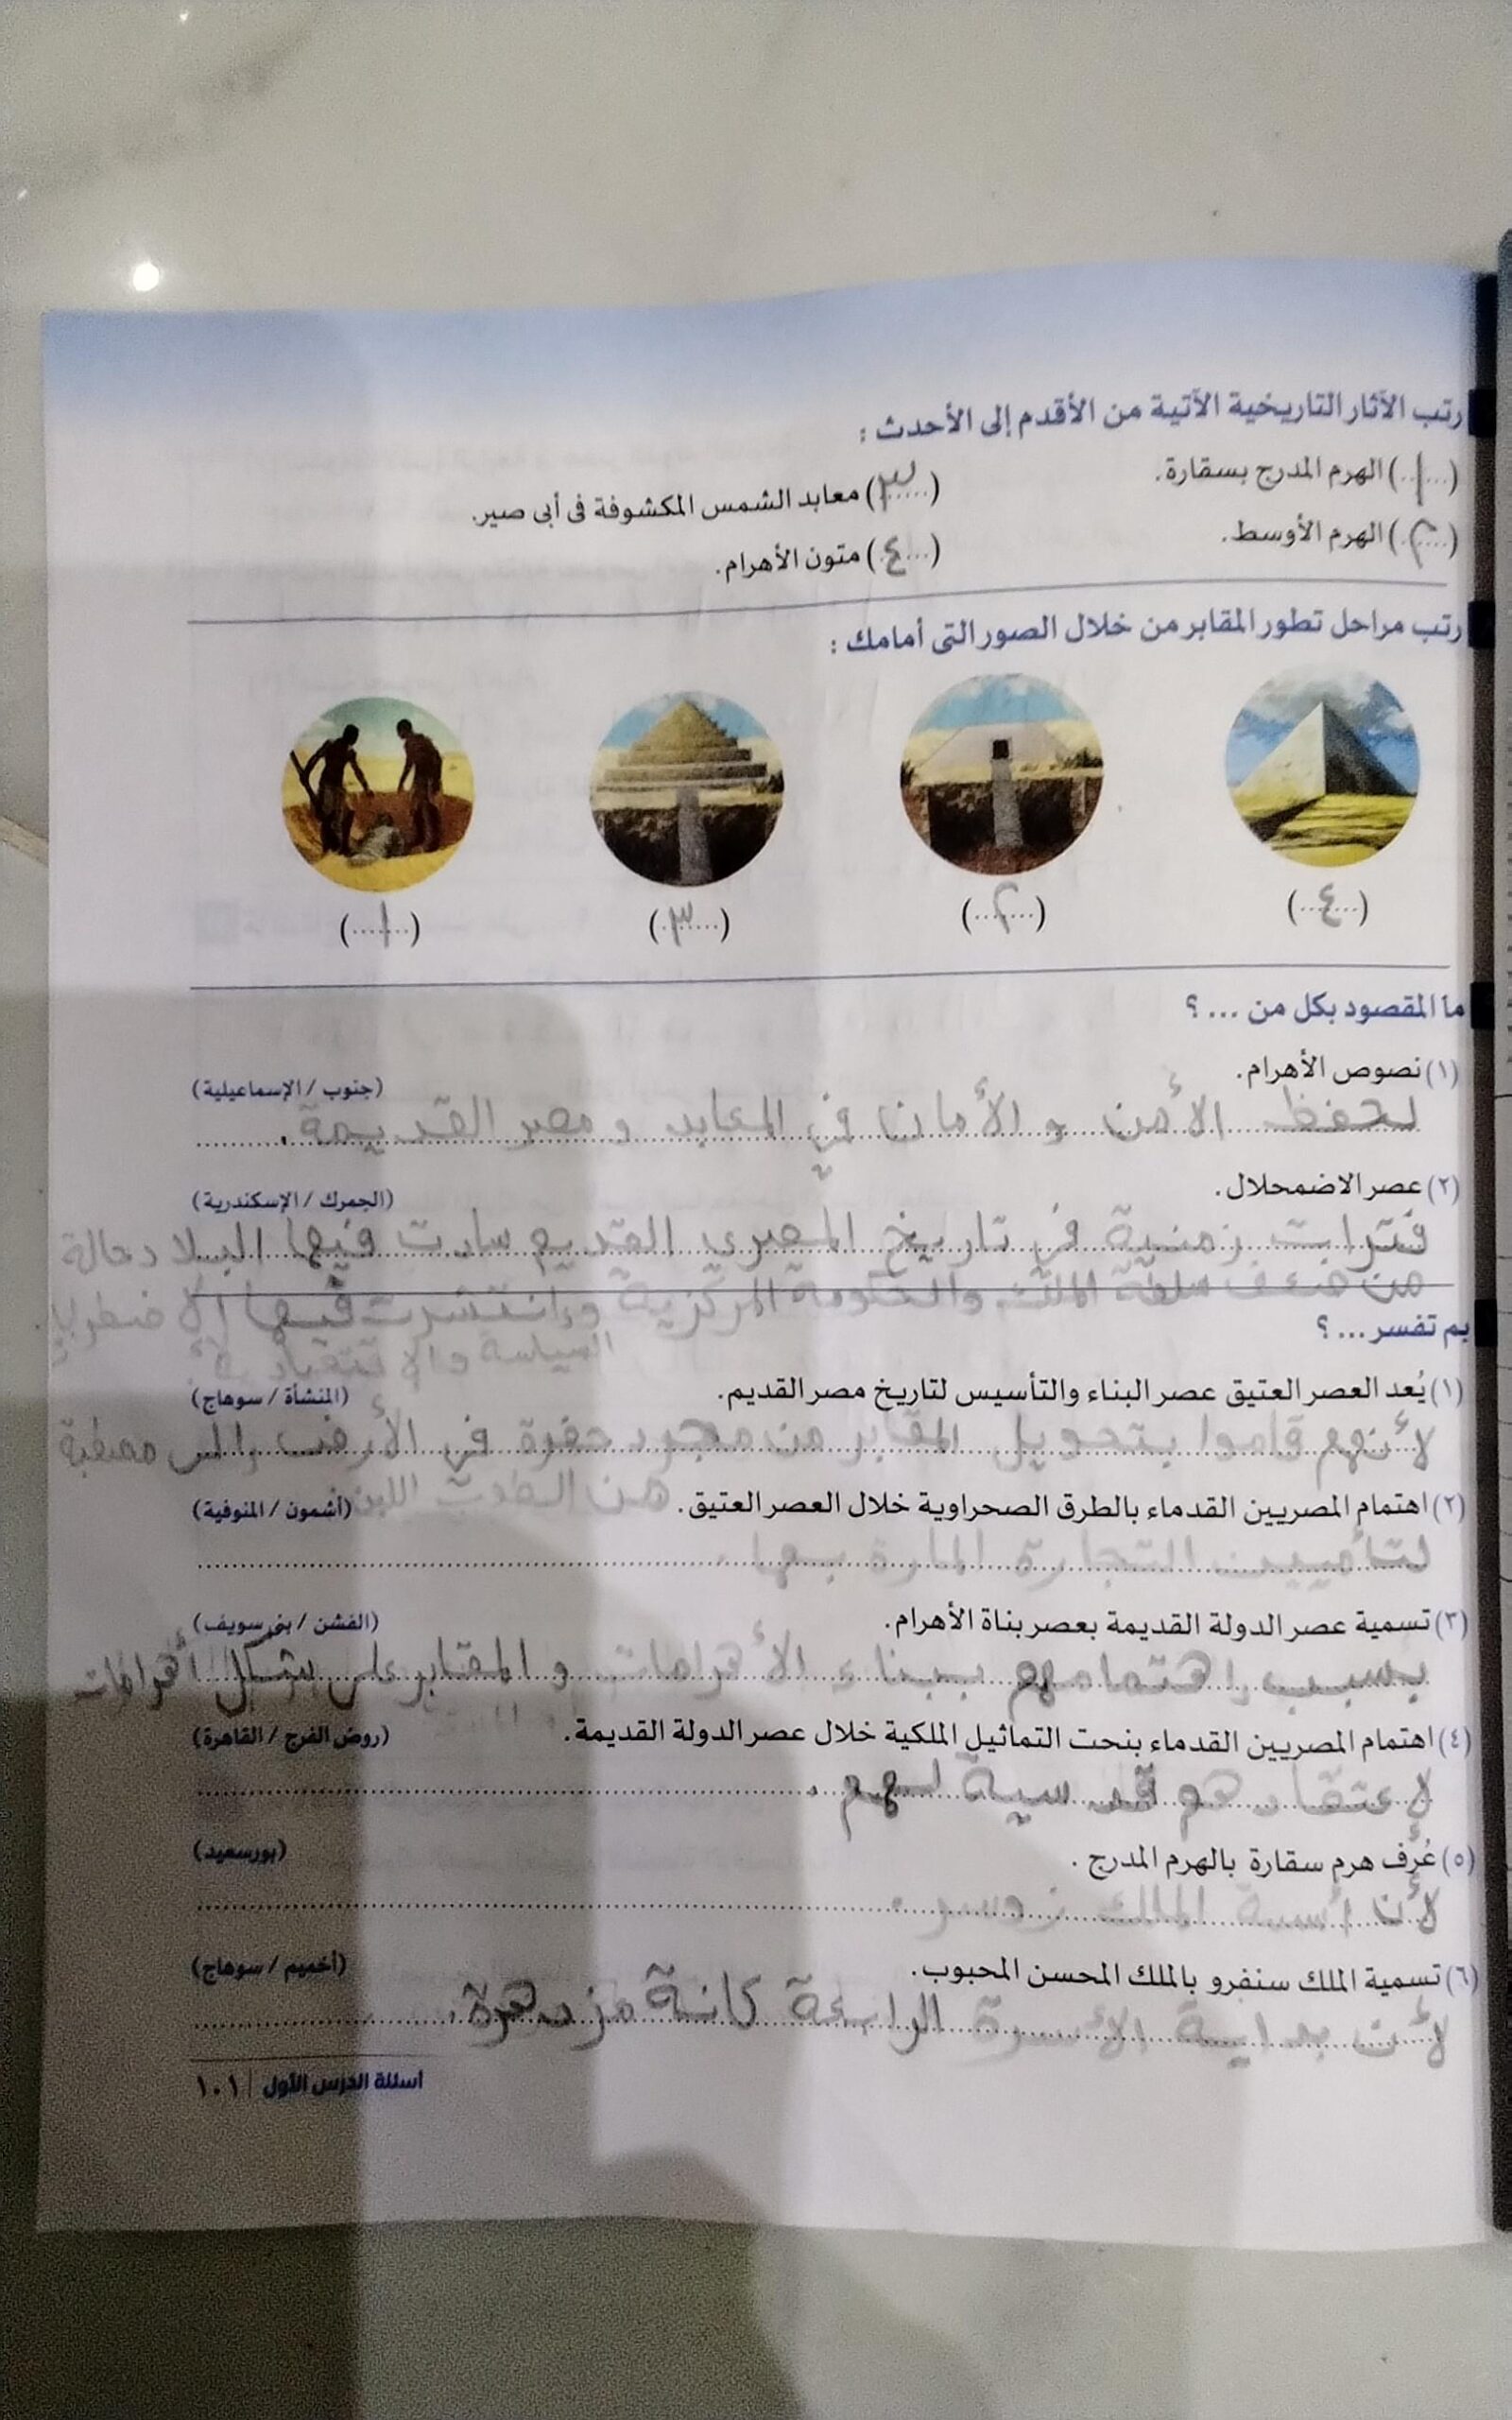 رتب الآثار التاريخية الآتية من الأقدم إلى الأحدث :
(١) الهرم المدرج بسقارة.
(٣) معابد الشمس المكشوفة فى أبى صير.
(٢) الهرم الأوسط.
(٤) متون الأهرام.
رتب مراحل تطور المقابر من خلال الصور التى أمامك :
(٤) (٢) (٣) (١)
ما المقصود بكل من ... ؟
(١) نصوص الأهرام. (جنوب / الإسماعيلية)
لحفظ الأمن و الأمان في المعابد و مصر القديمة.
(٢) عصر الاضمحلال. (الجمرك / الإسكندرية)
فترات زمنية في تاريخ المصري القديم سادت فيها البلاد حالة
من ضعف سلطة الملك والحكومة المركزية وانتشرت فيها
السياسة
بم تفسر ... ؟
(١) يُعد العصر العتيق عصر البناء والتأسيس لتاريخ مصر القديم. (المنشأة / سوهاج)
لأنهم قاموا بتحويل المقابر من مجرد حفرة في الأرض إلى مصطبة
من الطوب اللبن
(٢) اهتمام المصريين القدماء بالطرق الصحراوية خلال العصر العتيق. (أشمون / المنوفية)
لتأميين التجارة المارة بها.
(٣) تسمية عصر الدولة القديمة بعصر بناة الأهرام. (الفشن / بنى سويف)
بسبب إهتمامهم ببناء الأهرامات و المقابر على شكل أهرامات
(٤) اهتمام المصريين القدماء بنحت التماثيل الملكية خلال عصر الدولة القديمة. (روض الفرج / القاهرة)
لاعتقادهم قدسية لهم.
(٥) عُرف هرم سقارة بالهرم المدرج . (بورسعيد)
لأن أسسة الملك زوسر.
(٦) تسمية الملك سنفرو بالملك المحسن المحبوب. (أخميم / سوهاج)
لأن بداية الأسرة الرابعة كانة مزدهرة.
أسئلة الدرس الأول | ١٠١